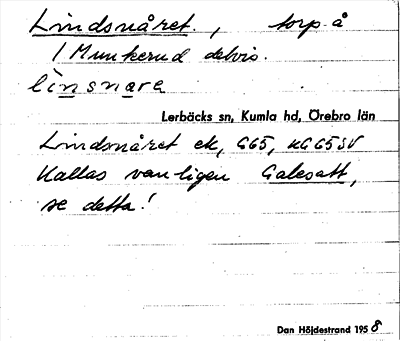 Lindsnåret, torp å
1 Munkerud delvis.
li̇̀nsnara
Lerbäcks sn, Kumla hd, Örebro län
Lindsnåret ek, G65, KG65SV
Kallas vanligen Galesatt,
se detta!
Dan Höjdestrand 1958